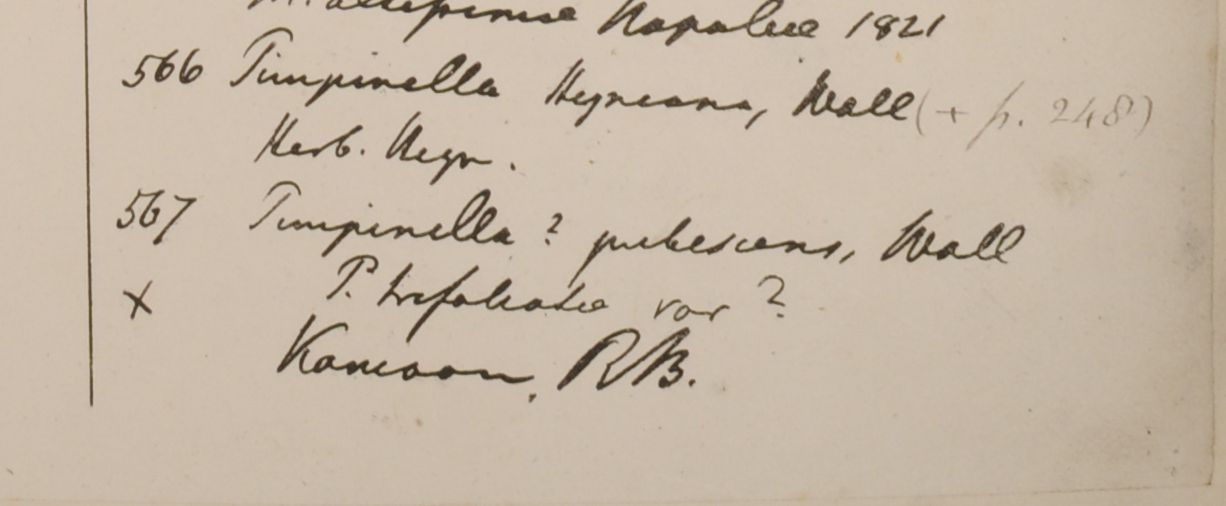 Napaliae 1821
566 Pimpinella Heyneana, Wall (+ p. 248)
Herb. Heyn.
567 Pimpinella ? pubescens, Wall
x P. trifoliata var ?
Kamaon, RB.